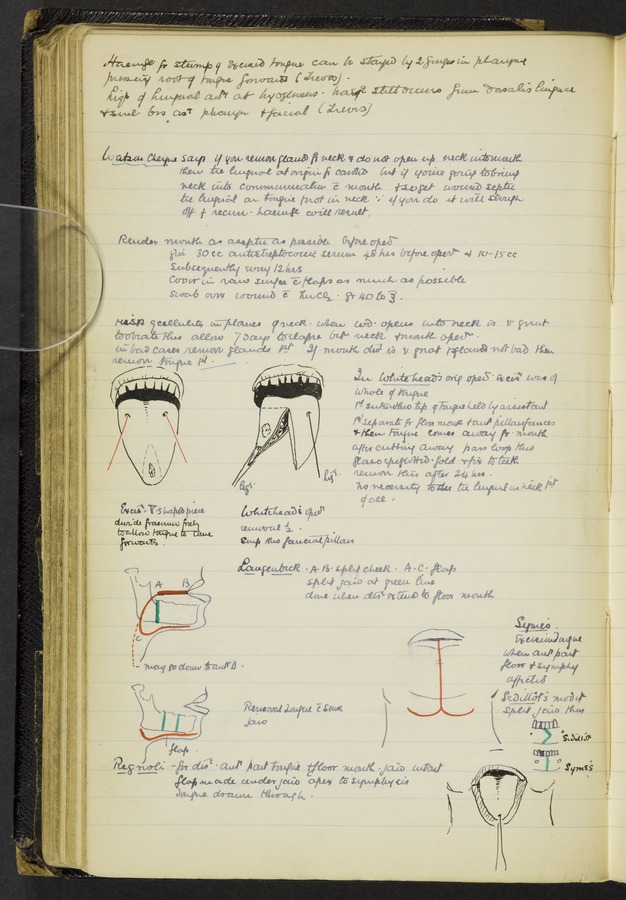 Haemge fr stump of Excised tongue can be stayed by 2 fingers in pharynx
pressing root of tongue forwards (Treves).
Lig of lingual arts at hyoglossus. haege still occurs from Dorsalis linguae
& small brs asct pharynx & facial (Treves)
Watson Cheyne says if you remove glands fr neck & do not open up neck into mouth
then tie lingual at origin fr carotid but if youre going to bring
neck into communication c mouth & so get wound septic
tie lingual in tongue & not in neck ∵ if you do it will slough
off & recurr. haemge will result.
Render mouth as aseptic as possible before opern
Giv 30 cc antistreptococcic serum 48 hrs before opern & 10-15 cc
Subsequently every 12 hrs
Cover in raw surface c flaps as much as possible
swab over wound c ZnCl2. gr 40 to ℥.
Risk of cellulitis in planes of neck when wd. opens into neck is v great
to obviate this allow 7 Days to elapse bet neck & mouth opern.
in bad cases remove glands 1st If mouth dis is v great & glands not bad then
remove tongue 1st.
In Whitehead's orig opern excisn was of
whole of tongue
1st suture thro tip of tongue held by assistant
1st separate fr floor mouth & ant pillars fauces
& then tongue comes away fr mouth
after cutting away pass loop thro
glosso epiglottid. fold & fix to teeth
remove this after 24 hrs.
no necessity to tie the lingual in neck 1st
of all.
Excisn V-shaped piece
divide fraenum freely
to allow tongue to come
forwards.
Whitehead's opern
removal ½.
Snip thro faucial pillars
Langenbeck. A B. split cheek. A-C. flap
split jaw at green line
done when disn extends to floor mouth
A B
C
may go down to ant Δ.
Removal Tongue c some
Jaw
flap.
Regnoli - for disn. ant part tongue & floor mouth. jaw intact
flap made under jaw apex to symphysis
Tongue drawn through.
Syme's.
Excision tongue
when ant part
floor & symphy
affected
Sedillot's modif
split jaw thus
Sedillot
Syme's